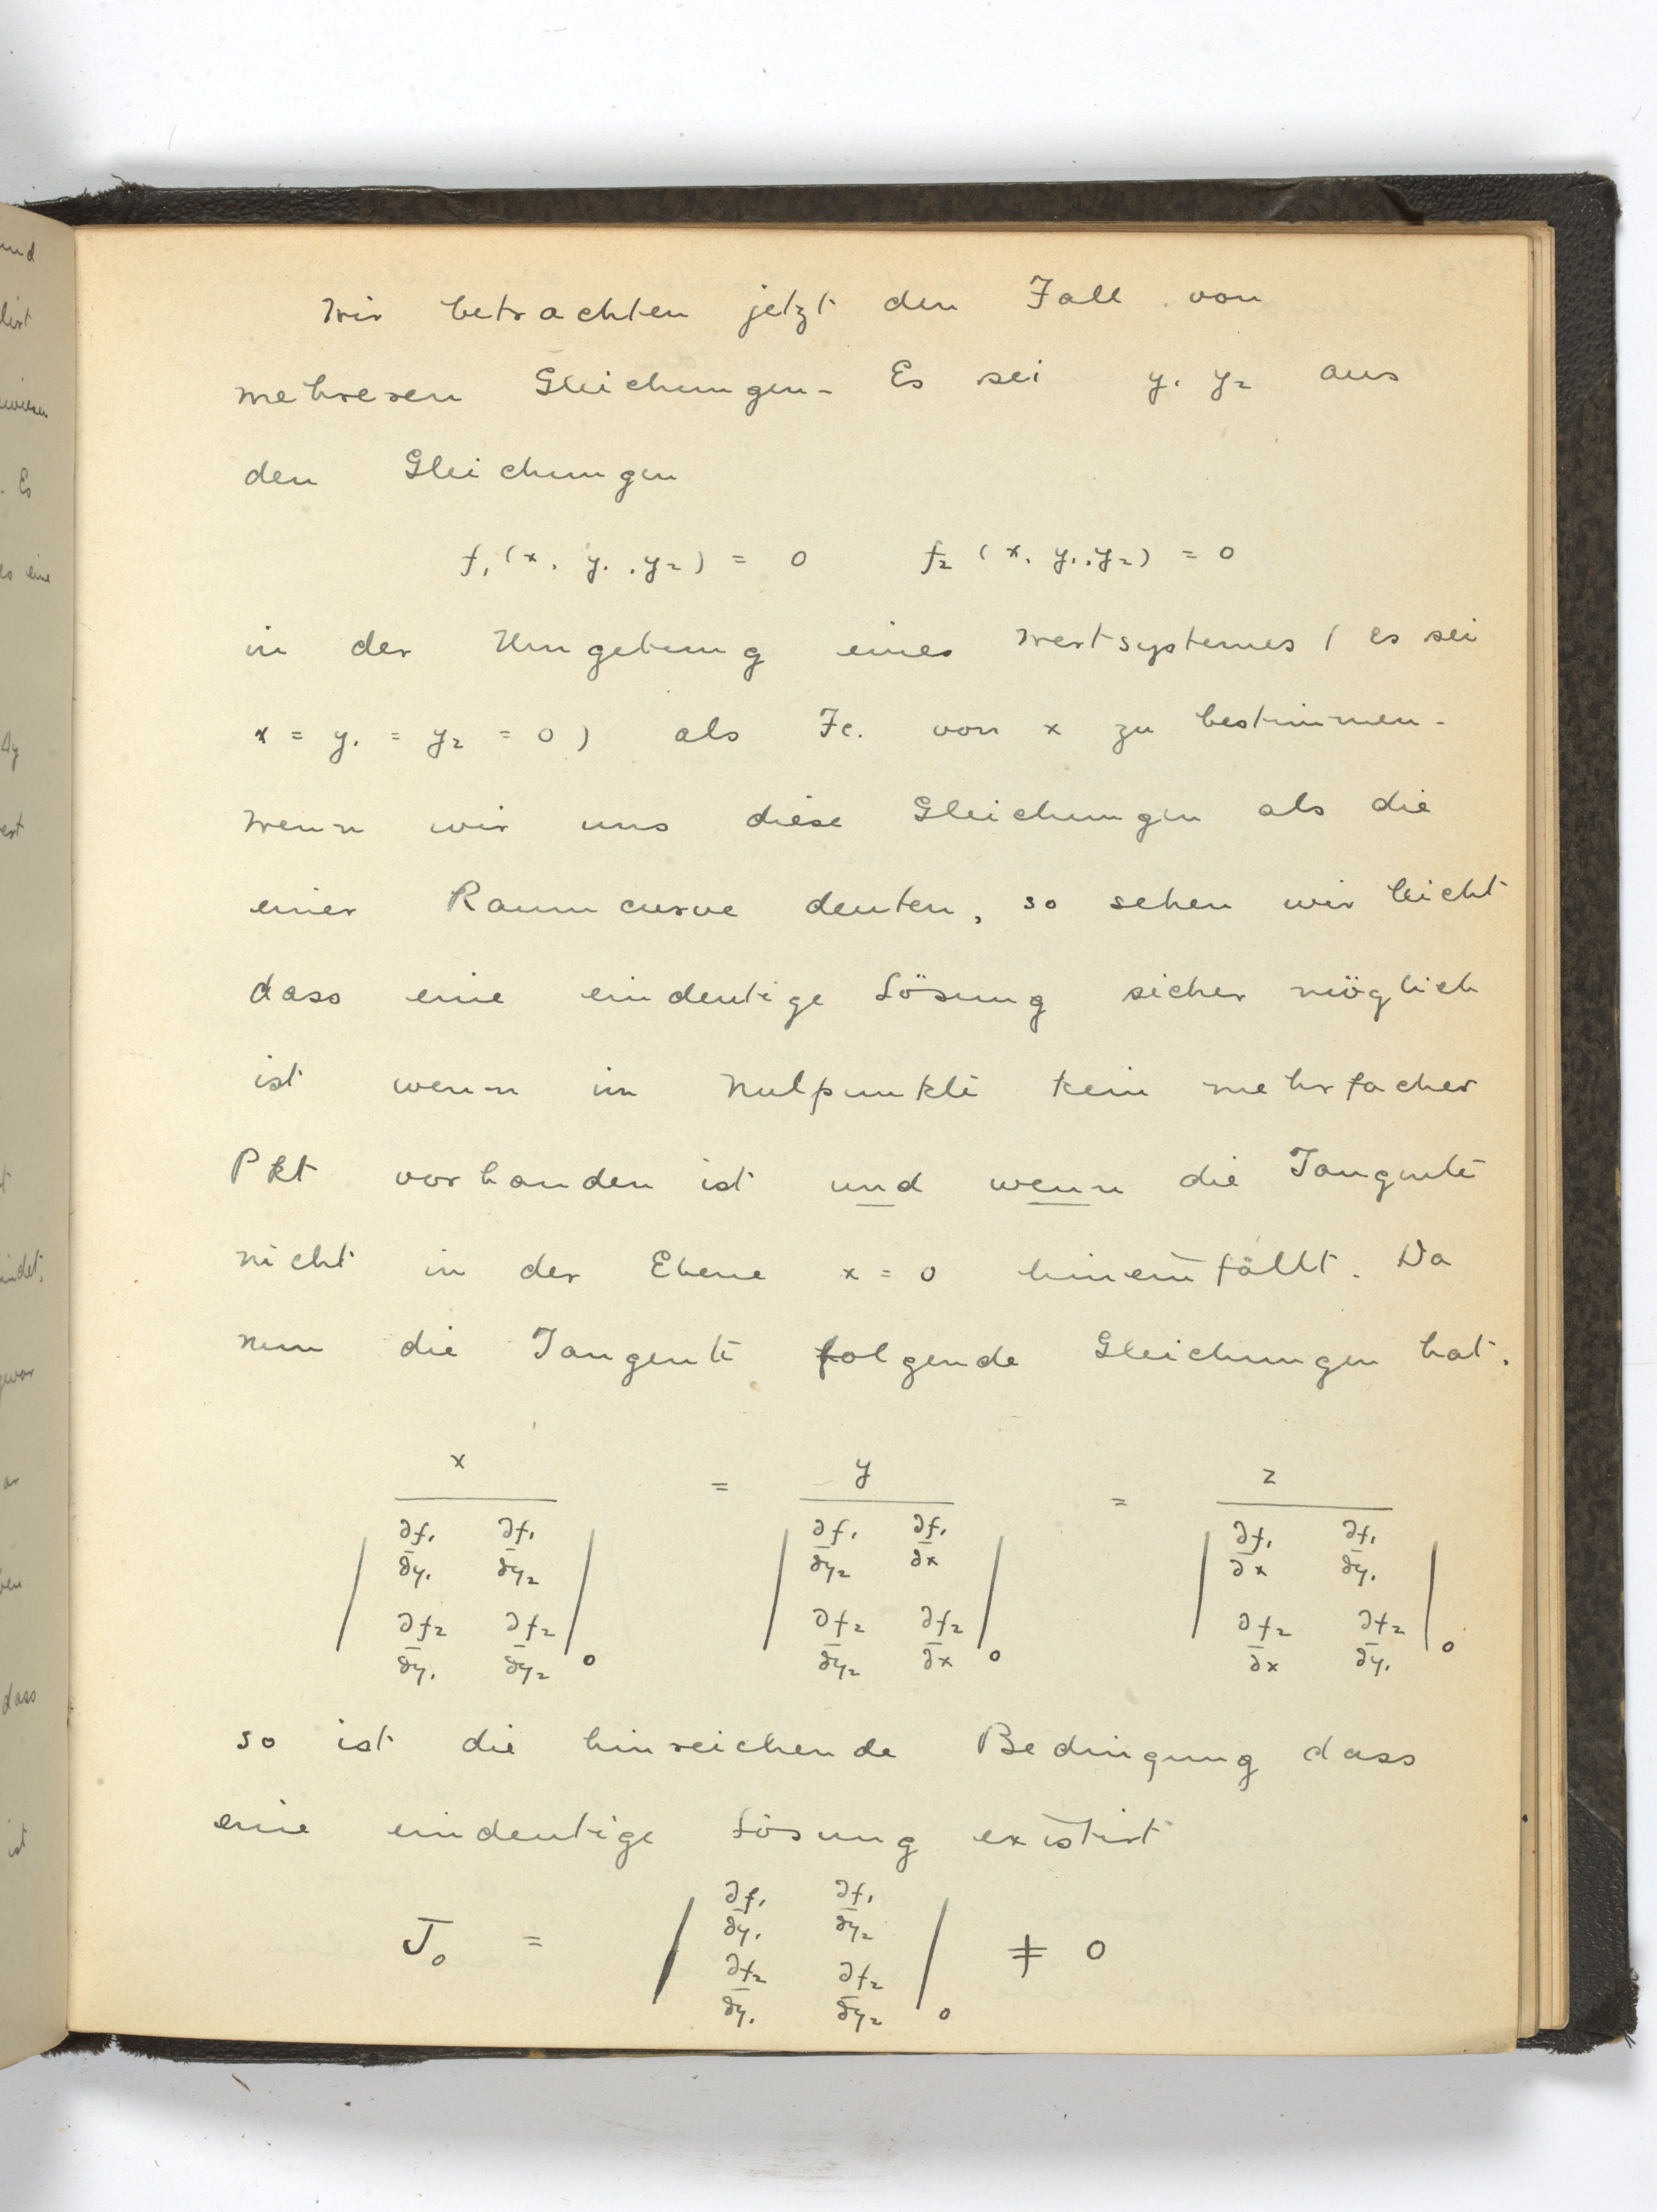 Wir betrachten jetzt den Fall von
mehreren Gleichungen. Es sei y₁ y₂ aus
den Gleichungen
f₁(x, y₁, y₂) = 0 f₂(x, y₁, y₂) = 0
in der Umgebung eines Wertsystemes (es sei
x = y₁ = y₂ = 0) als Fc. von x zu bestimmen.
Wenn wir uns diese Gleichungen als die
einer Raumcurve deuten, so sehen wir leicht
dass eine eindeutige Lösung sicher möglich
ist wenn im Nulpunkte kein mehrfacher
Pkt vorhanden ist und wenn die Tangente
nicht in der Ebene x = 0 hineinfällt. Da
nun die Tangente folgende Gleichungen hat.
x = y = z
∂f₁ ∂f₁ ∂f₁ ∂f₁ ∂f₁ ∂f₁
∂y₁ ∂y₂ ∂y₂ ∂x ∂x ∂y₁
∂f₂ ∂f₂ ∂f₂ ∂f₂ ∂f₂ ∂f₂
∂y₁ ∂y₂ 0 ∂y₂ ∂x 0 ∂x ∂y₁ 0
so ist die hinreichende Bedingung dass
eine eindeutige Lösung existirt
∂f₁ ∂f₁
∂y₁ ∂y₂
J₀ = ≠ 0
∂f₂ ∂f₂
∂y₁ ∂y₂ 0
und
Es
dass
ist